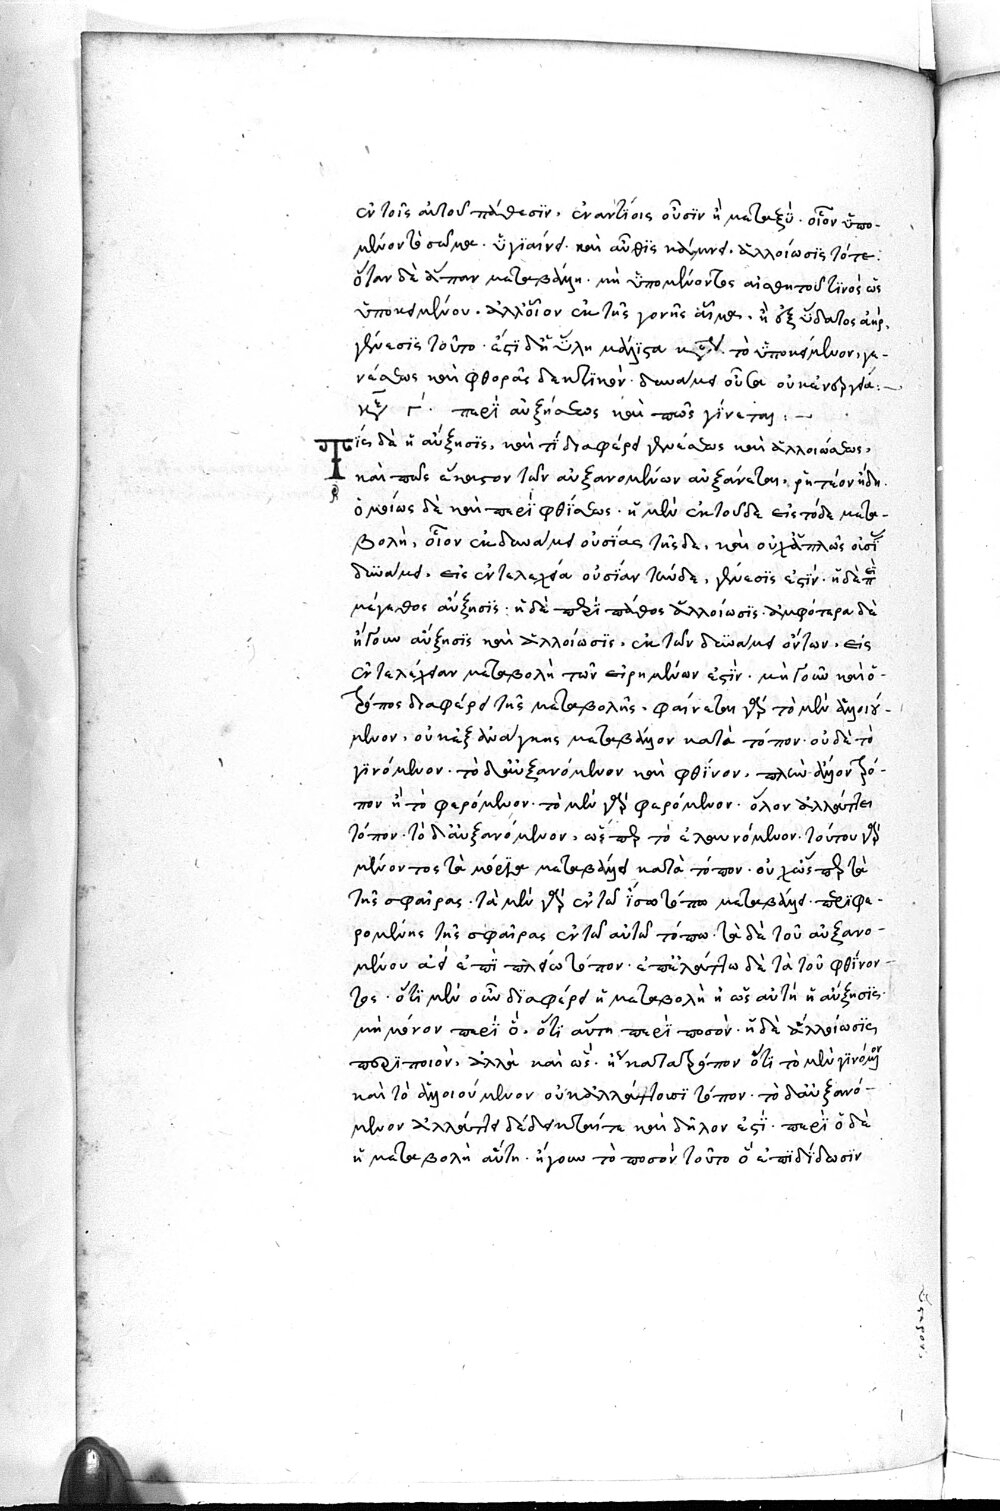 ἐν τοῖς αὐτοῦ πάθεσιν, ἐναντίοις οὖσιν ἢ μεταξύ· οἷον ὑπο-
μένον τὸ σῶμα· ὑγιαίνει· καὶ αὖθις κάμνει, ἀλλοίωσις τότε·
ὅταν δὲ ἅπαν μεταβάλῃ· μὴ ὑπομένοντος αἰσθητοῦ τινὸς ὡς
ὑποκειμένου· ἀλλ' οἷον ἐκ τῆς γονῆς αἷμα, ἢ ἐξ ὕδατος ἀήρ,
γένεσις τοῦτο· ἔστι δὲ ἡ ὕλη μάλιστα τὸ ὑποκείμενον, γε-
νέσεως καὶ φθορᾶς δεκτικόν· δυνάμει οὖσα οὐκ ἐνεργείᾳ:-
κεφ γ΄· περὶ αὐξήσεως καὶ πῶς γίνεται:-
Τίς δὲ ἡ αὔξησις, καὶ τί διαφέρει γενέσεως καὶ ἀλλοιώσεως,
καὶ πῶς ἕκαστον τῶν αὐξανομένων αὐξάνεται, ῥητέον ἤδη·
ὁμοίως δὲ καὶ περὶ φθίσεως· ἡ μὲν ἐκ τοῦδε εἰς τόδε μετα-
βολή, οἷον ἐκ δυνάμει οὐσίας τῆσδε, καὶ οὐχ ἁπλῶς
δυνάμει, εἰς ἐντελεχείᾳ οὐσίαν τήνδε, γένεσίς ἐστιν· ἡ δὲ περὶ
μέγεθος αὔξησις· ἡ δὲ περὶ πάθος ἀλλοίωσις· ἀμφότερα δὲ
ἤγουν αὔξησις καὶ ἀλλοίωσις, ἐκ τῶν δυνάμει ὄντων, εἰς
ἐντελέχειαν μεταβολὴ τῶν εἰρημένων ἐστίν· μὴ γοῦν καὶ ὁ
τρόπος διαφέρει τῆς μεταβολῆς, φαίνεται γὰρ τὸ μὲν ἀλλοιού-
μενον, οὐκ ἐξ ἀνάγκης μεταβάλλον κατὰ τόπον· οὐδὲ τὸ
γινόμενον· τὸ δ' αὐξανόμενον καὶ φθῖνον, πλὴν ἄλλον τρό-
πον ἢ τὸ φερόμενον· τὸ μὲν γὰρ φερόμενον· ὅλον ἀλλάττει
τόπον· τὸ δ' αὐξανόμενον, ὥσπερ τὸ ἐλαυνόμενον· τούτου γὰρ
μένοντος τὰ μόρια μεταβάλλει κατὰ τόπον· οὐχ ὥσπερ τὰ
τῆς σφαίρας· τὰ μὲν γὰρ ἐν τῷ ἴσῳ τόπῳ μεταβάλλει· περιφε-
ρομένης τῆς σφαίρας ἐν τῷ αὐτῷ τόπῳ· τὰ δὲ τοῦ αὐξανο-
μένου ἀεὶ ἐπὶ πλείω τόπον· ἐπ' ἐλάττω δὲ τὰ τοῦ φθίνον-
τος· ὅτι μὲν οὖν διαφέρει ἡ μεταβολὴ ἢ ὡς αὐτὴ ἡ αὔξησις·
μὴ μόνον περὶ ὅ, ὅτι αὕτη περὶ ποσόν· ἡ δὲ ἀλλοίωσις
περὶ ποιόν, ἀλλὰ καὶ ὥς· ἢ κατὰ τρόπον ὅτι τὸ μὲν γινόμενον
καὶ τὸ ἀλλοιούμενον οὐκ ἀλλάττουσι τόπον· τὸ δ' αὐξανό-
μενον ἀλλάττει δέδεικταί τε καὶ δῆλον ἐστί· περὶ ὃ δὲ
ἡ μεταβολὴ αὕτη· ἤγουν τὸ ποσὸν τοῦτο ὃ ἐπιδίδωσιν